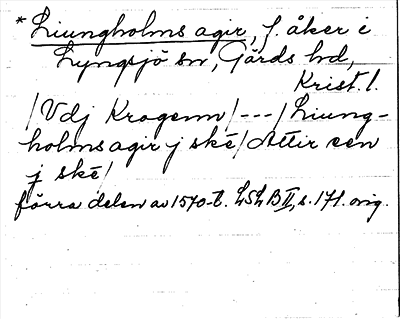 * Liungholms agir, f. åker i
Lyngsjö sn, Gärds hd,
Krist. l.
/Vdj Kragenn/---/Liung-
holms agir j ské/Attir een
j ské/
förra delen av 1570-t. LSLB II, s. 171. orig.